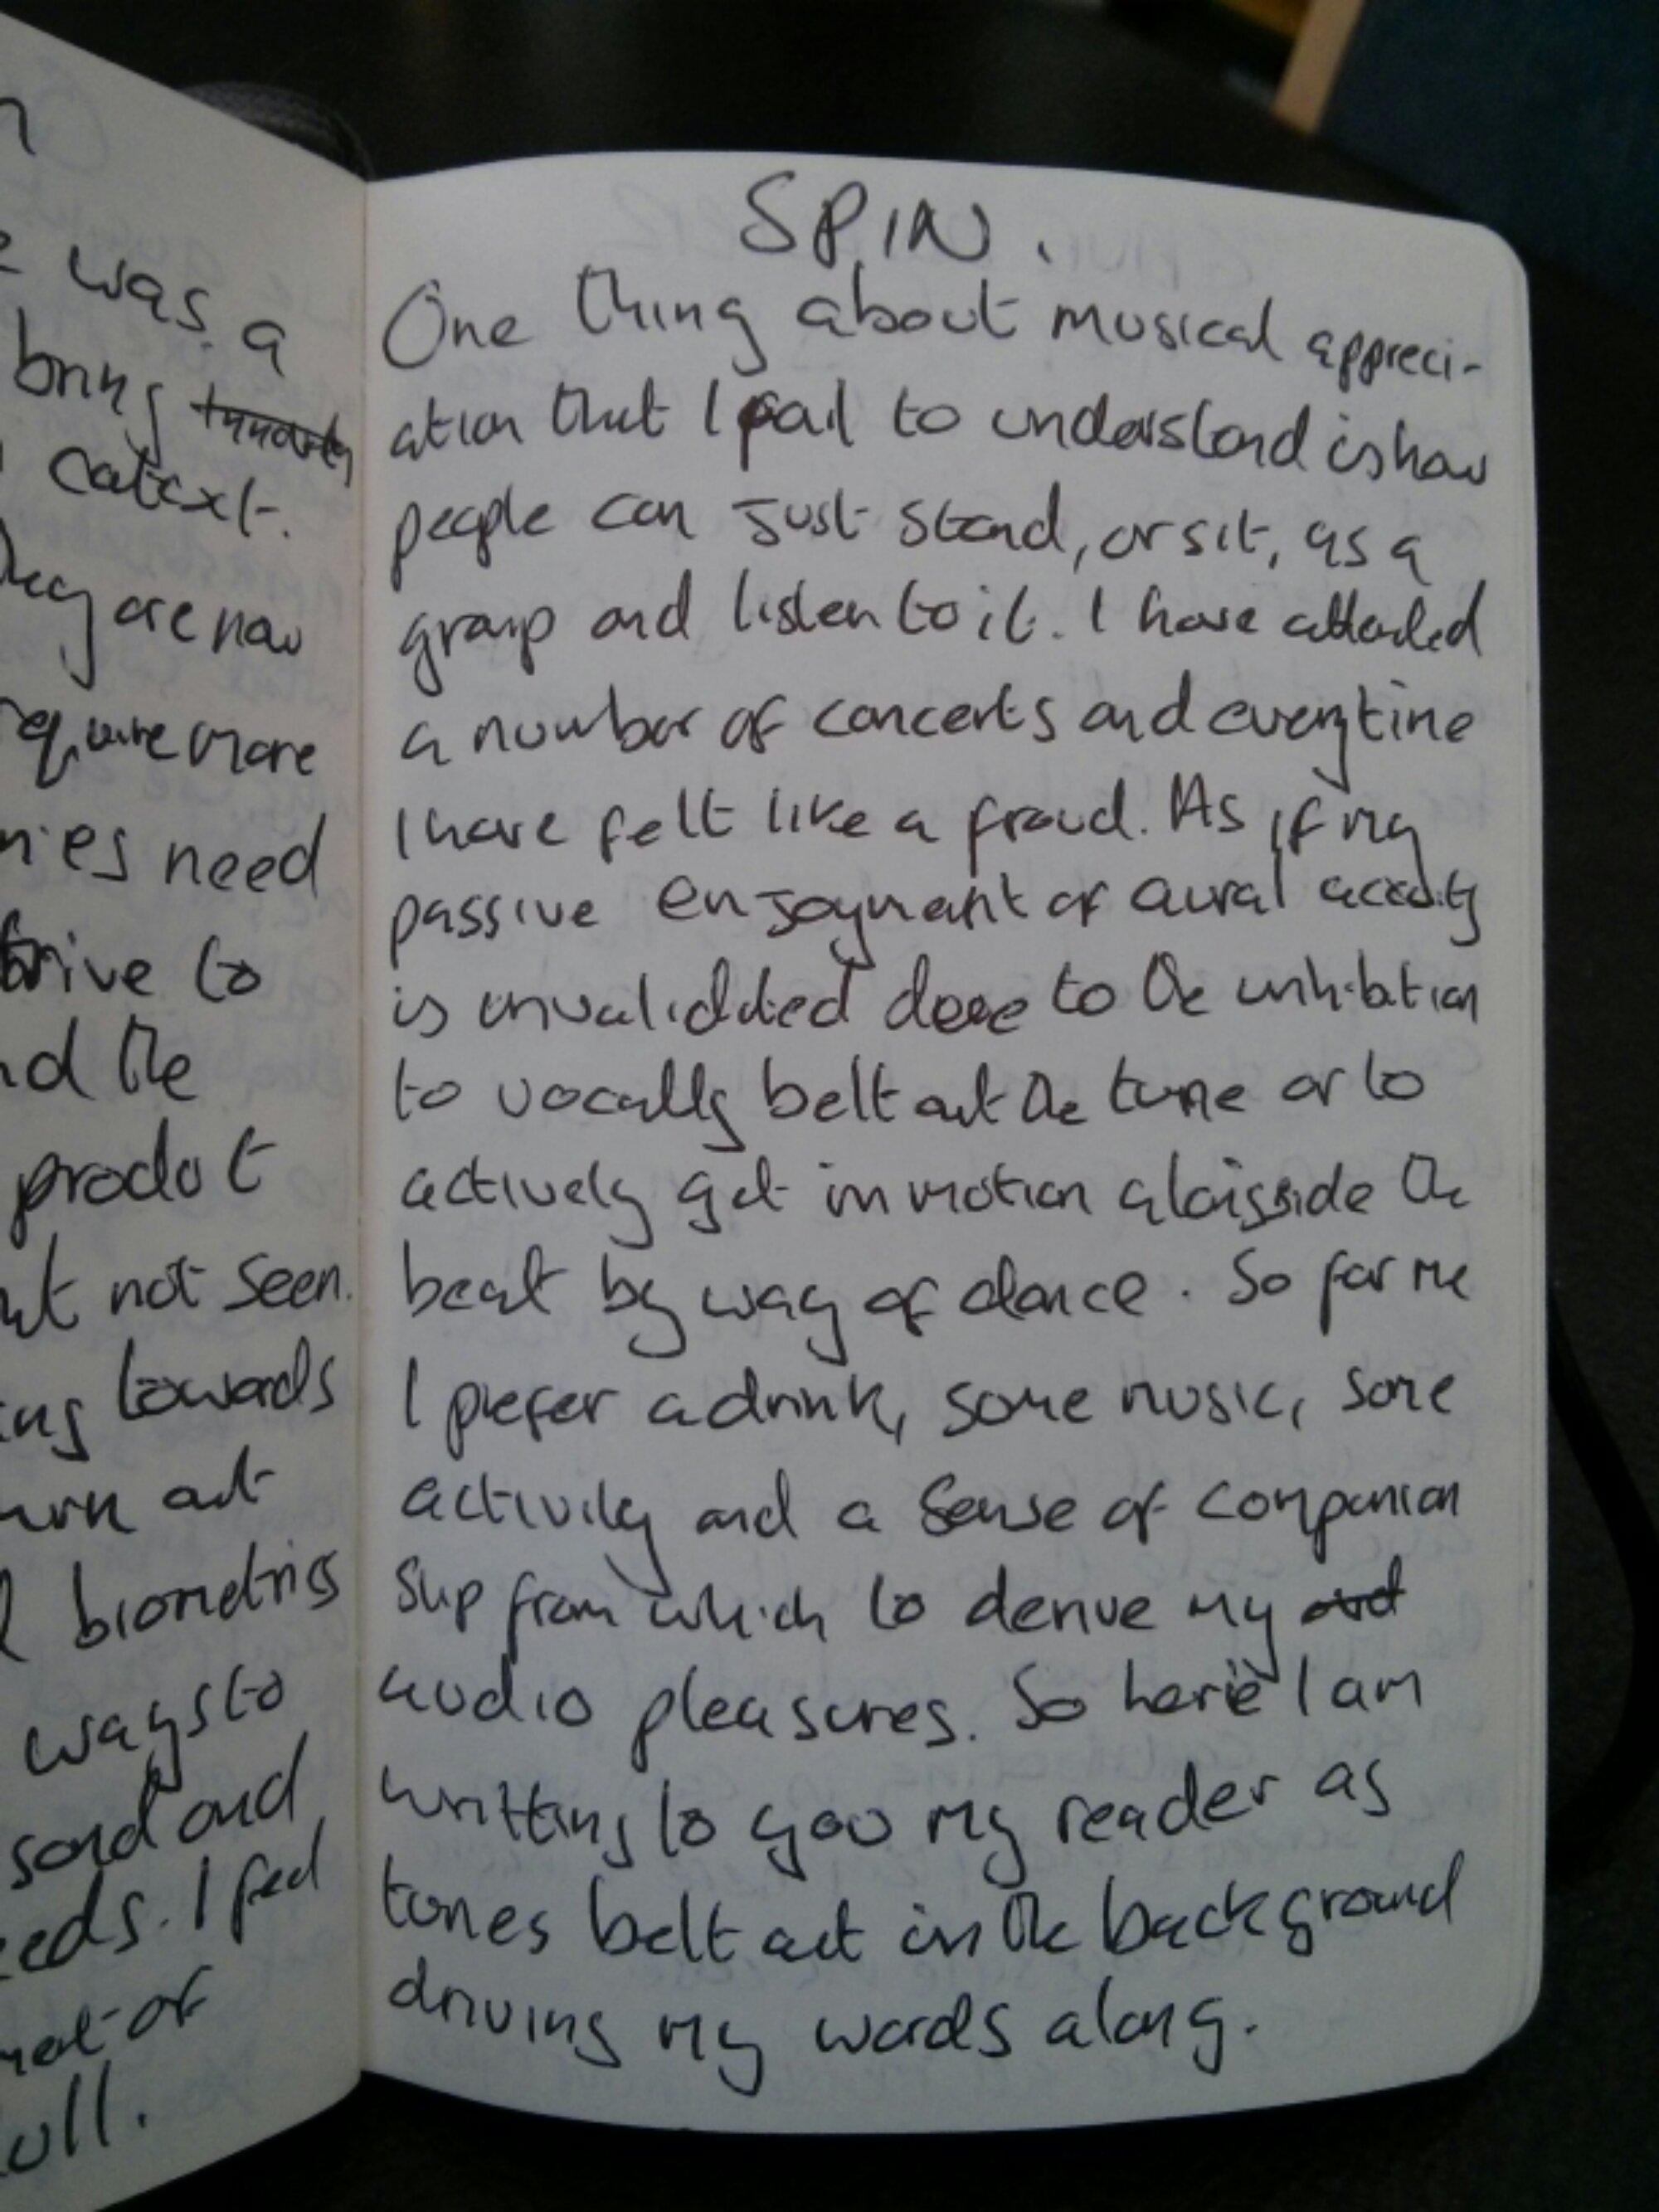 was a
bring
context.
are now
more
need
to
the
product
not seen.
towards
out
biometrics
ways to
sound and
I feel
of
SPIN.
One thing about musical appreci-
ation that I fail to understand is how
people can just stand, or sit, as a
group and listen to it. I have attended
a number of concerts and everytime
I have felt like a fraud. As if my
passive enjoyment of aural
is invalidated due to the inhibition
to vocally belt out the tune or to
actively get in motion alongside the
beat by way of dance. So for me
I prefer a drink, some music, some
activity and a sense of companion
ship from which to derive my
audio pleasures. So here I am
writting to you my reader as
tones belt out in the background
driving my words along.